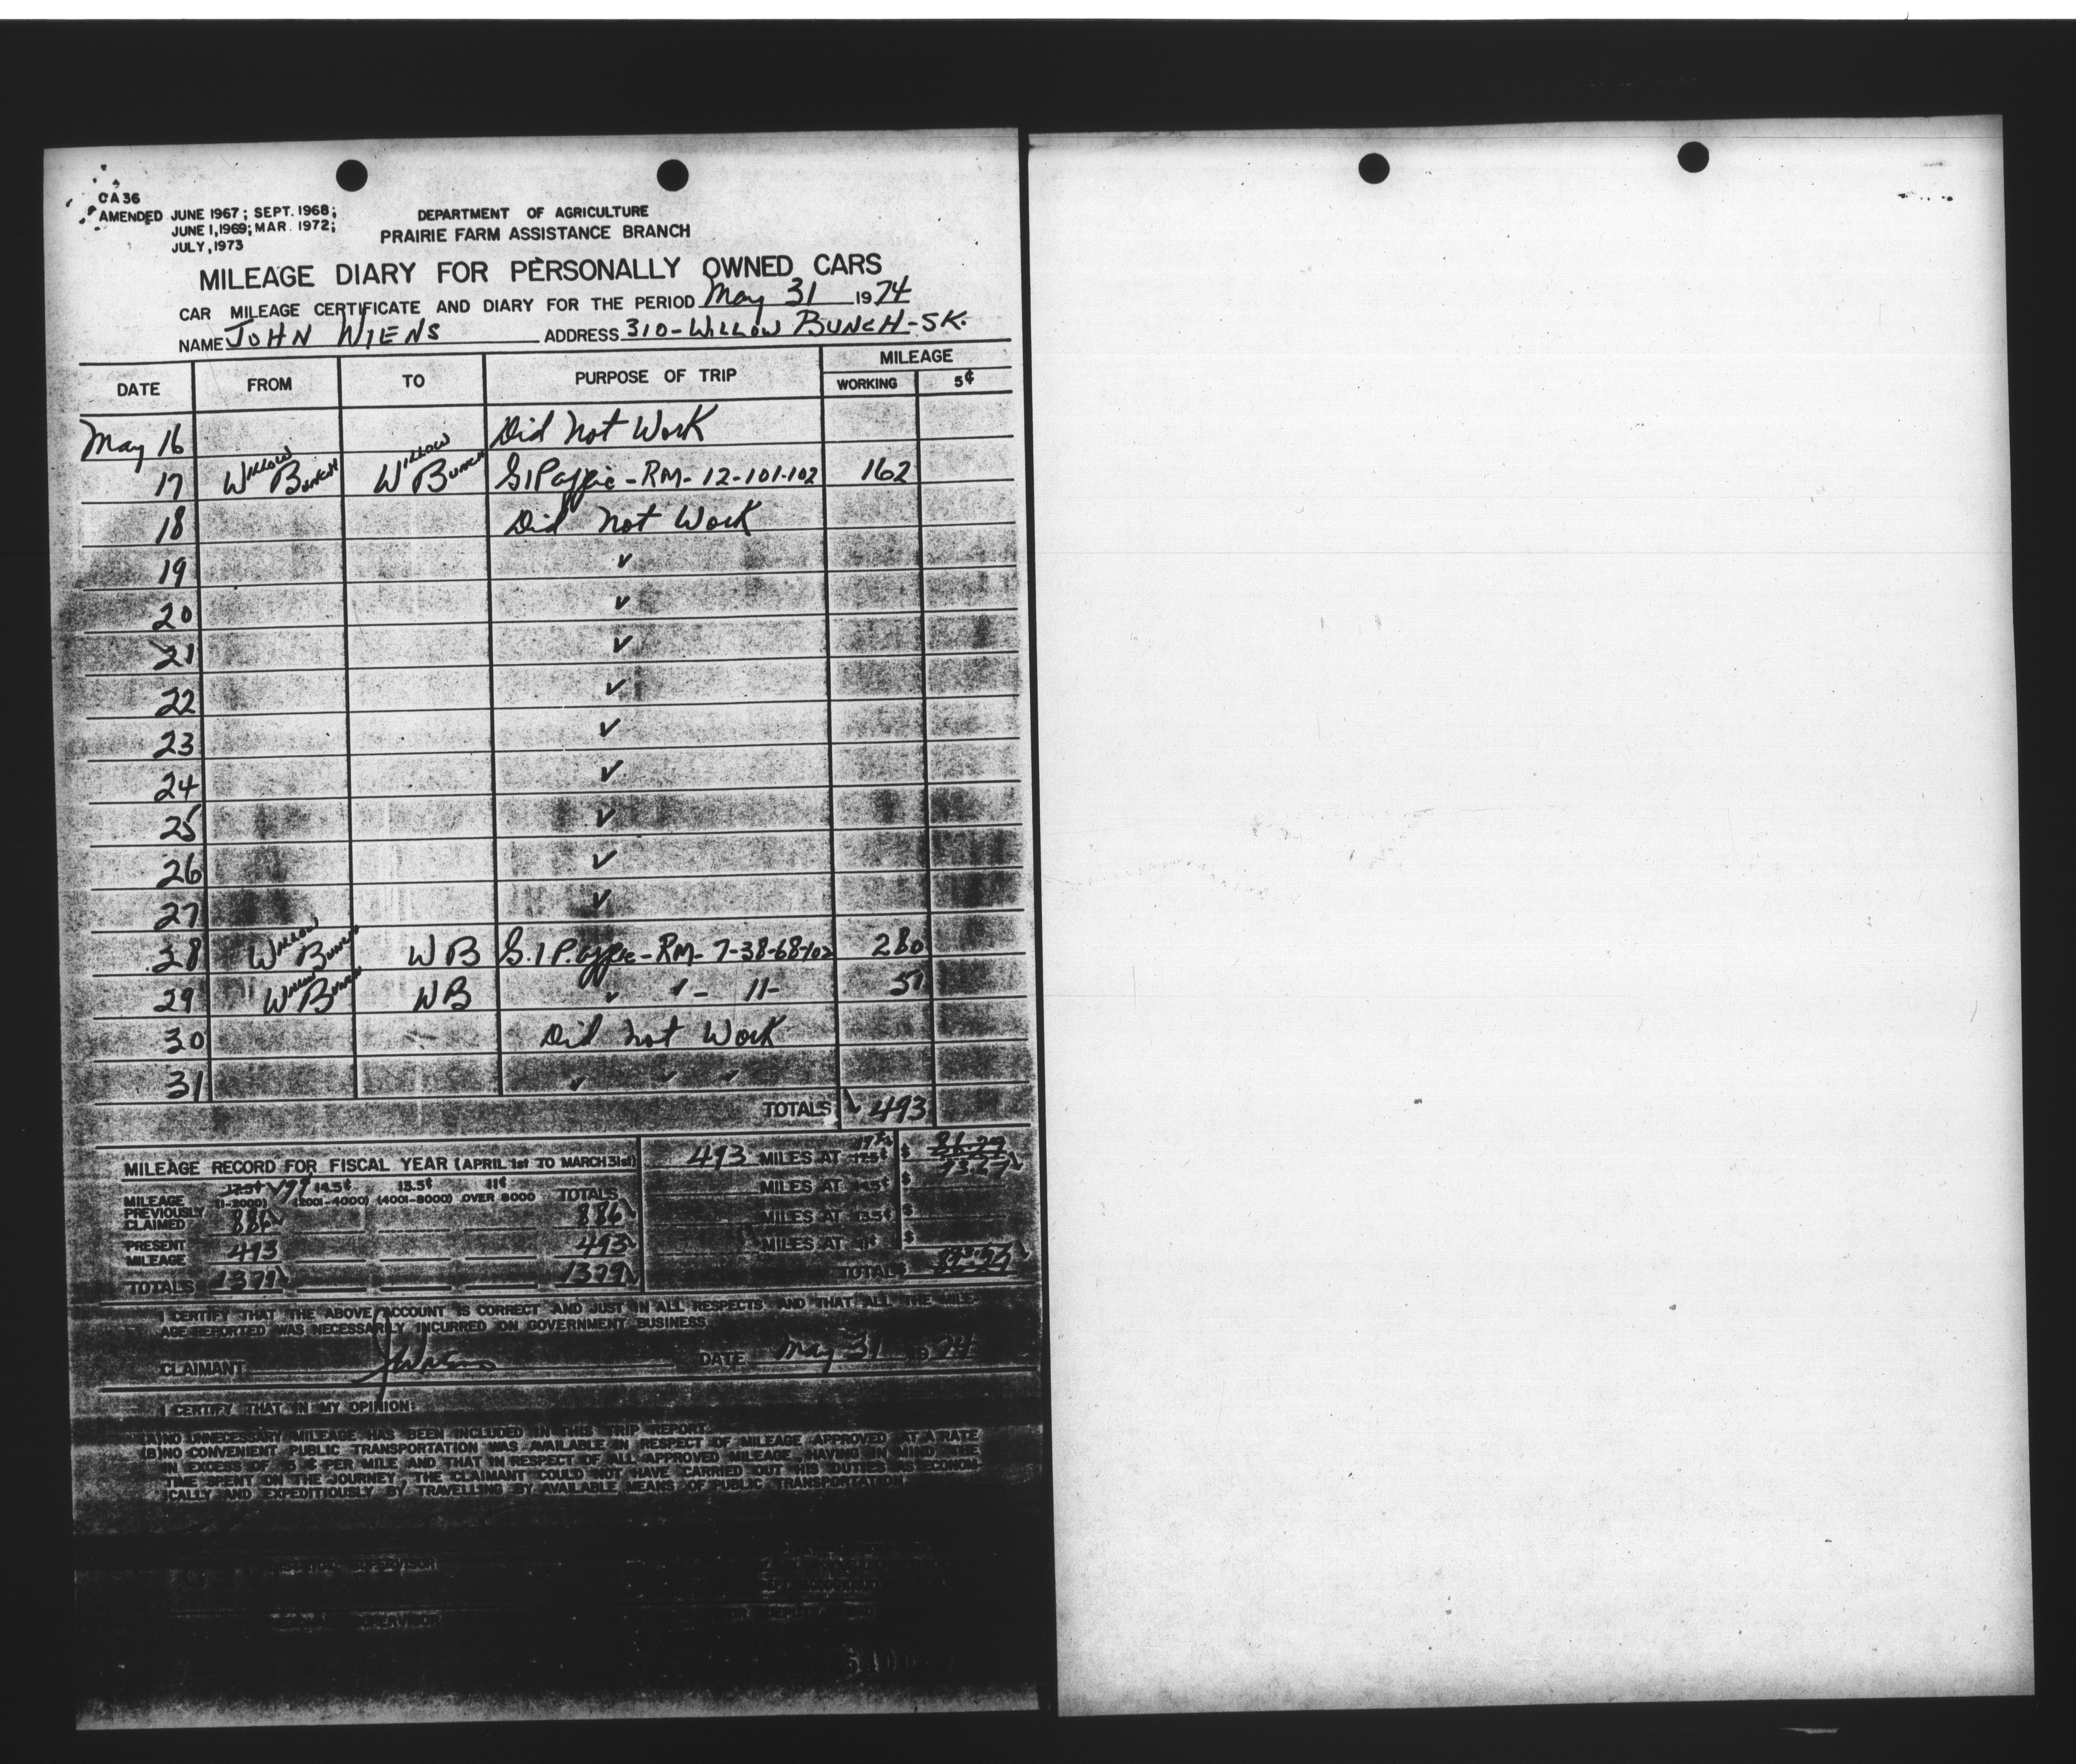 CA 36
AMENDED JUNE 1967; SEPT. 1968;
JUNE 1, 1969; MAR. 1972;
JULY, 1973
DEPARTMENT OF AGRICULTURE
PRAIRIE FARM ASSISTANCE BRANCH
MILEAGE DIARY FOR PERSONALLY OWNED CARS
CAR MILEAGE CERTIFICATE AND DIARY FOR THE PERIOD May 31 1974
NAME JOHN WIENS ADDRESS 310-WILLOW BUNCH-SK.
DATE FROM TO PURPOSE OF TRIP MILEAGE
WORKING 5¢
May 16 Did Not Work
17 Willow Bunch Willow Bunch - RM- 12-101-102 162
18 Did not Work
19 ✓
20 ✓
21 ✓
22 ✓
23 ✓
24 ✓
25 ✓
26 ✓
27 ✓
28 Willow Bunch WB - RM- 7-38-68-102 280
29 Willow Bunch WB ✓ ✓ - 11- 51
30 Did not Work
31 ✓ ✓ ✓
TOTALS 493
MILEAGE RECORD FOR FISCAL YEAR (APRIL 1st TO MARCH 31st)
17.5¢ 14.5¢ 13.5¢ 11¢
(1-2000) (2001-4000) (4001-8000) OVER 8000 TOTALS
MILEAGE PREVIOUSLY CLAIMED 886 886
PRESENT MILEAGE 493 493
TOTALS 1379 1379
493 MILES AT 17.5¢ $ 86.27
93.27
MILES AT 14.5¢ $
MILES AT 13.5¢ $
MILES AT 11¢ $
TOTAL
I CERTIFY THAT THE ABOVE ACCOUNT IS CORRECT AND JUST IN ALL RESPECTS AND THAT ALL THE MILE-
AGE REPORTED WAS NECESSARILY INCURRED ON GOVERNMENT BUSINESS
CLAIMANT J Wiens DATE May 31 1974
I CERTIFY THAT IN MY OPINION:
(A) NO UNNECESSARY MILEAGE HAS BEEN INCLUDED IN THIS TRIP REPORT
(B) NO CONVENIENT PUBLIC TRANSPORTATION WAS AVAILABLE IN RESPECT OF MILEAGE APPROVED AT A RATE
IN EXCESS OF 5 ¢ PER MILE AND THAT IN RESPECT OF ALL APPROVED MILEAGE, HAVING IN MIND THE
TIME SPENT ON THE JOURNEY, THE CLAIMANT COULD NOT HAVE CARRIED OUT HIS DUTIES AS ECONOM-
ICALLY AND EXPEDITIOUSLY BY TRAVELLING BY AVAILABLE MEANS OF PUBLIC TRANSPORTATION
SUPERVISOR
SUPERVISOR